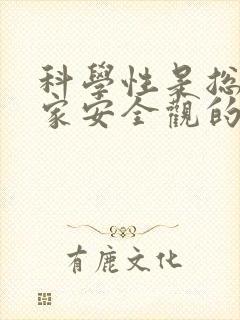 科學性是總
家安全觀的
有鹿文化